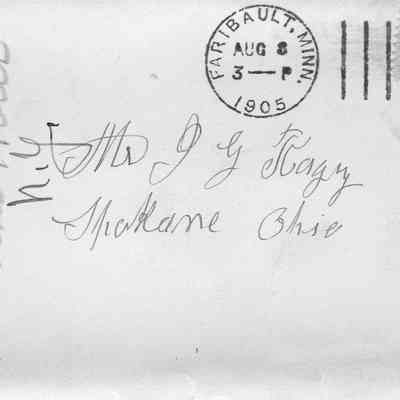 FARIBAULT, MINN.
AUG 8
3 — P
1905
Mr J G Kagy
Spokane Ohio